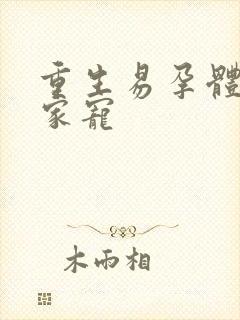 重生易孕體
家寵
木雨相